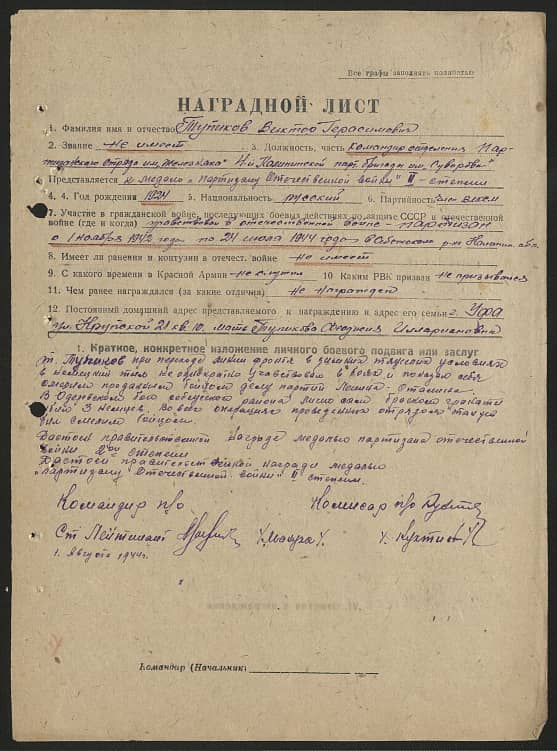 Все графы заполнять полностью
НАГРАДНОЙ ЛИСТ
1. Фамилия имя и отчество Тупиков Виктор Герасимович
2. Звание не имеет 3. Должность, часть командир отделения Пар-
тизанского отряда им. Железняка 4-й Калининской парт. бригады им. Суворова
Представляется к медали „партизану Отечественной войны" II - степени
4. 4. Год рождения 1924 5. Национальность русский 6. Партийность член влксм
7. Участие в гражданской войне, последующих боевых действиях по защите СССР и отечественной
войне (где и когда) участвовал в отечественной войне - партизан
с 1 ноября 1942 года по 24 июля 1944 года в р-не Калинин. обл.
8. Имеет ли ранения и контузии в отечест. войне не имеет
9. С какого времени в Красной Армии не служил 10 Каким РВК призван не призывался
11. Чем ранее награждался (за какие отличия) не награжден
12. Постоянный домашний адрес представляемого к награждению и адрес его семьи г. Уфа
ул. Крупской 21 кв. 10. мать Тупикова Илларионовна
1. Краткое, конкретное изложение личного боевого подвига или заслуг
т. Тупиков при переходе линии фронта в зимних тяжелых условиях
в немецкий тыл не однократно участвовал в боях и показал себя
смелым преданным бойцом делу партии Ленина - Сталина.
В бою себежского района лично сам броском гранаты
убил 3 немцев. Во всех операциях проведенных отрядом также
был смелым бойцом.
Достоин правительственной награде медалью партизана отечественной
войны 2ой степени
Достоин правительственной награды медалью
„партизану Отечественной войны" II степени.
Командир п/о Комисар п/о
Ст Лейтенант
1. Августа 1944г.
Командир (Начальник)